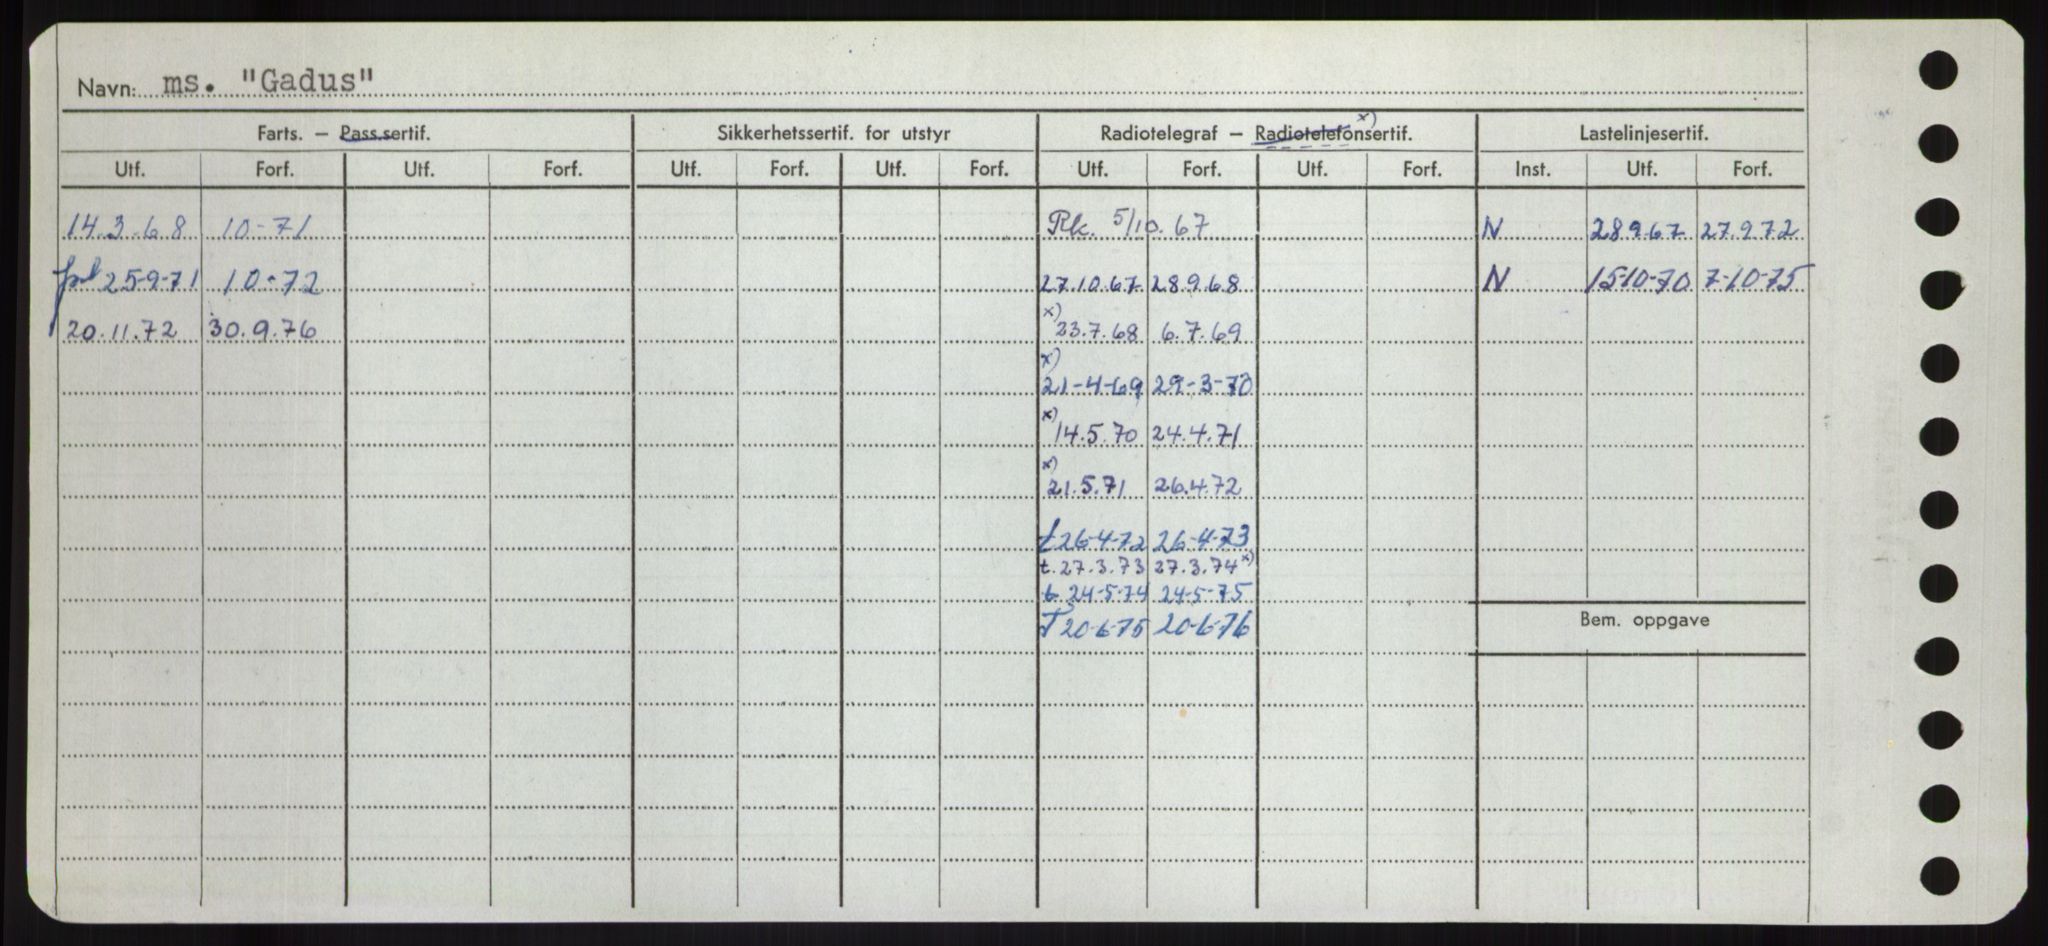 Navn: ms. "Gadus"
Farts. – Pass.sertif. Sikkerhetssertif. for utstyr Radiotelegraf – Radiotelefonsertif. x) Lastelinjesertif.
Utf. Forf. Utf. Forf. Utf. Forf. Utf. Forf. Utf. Forf. Utf. Forf. Inst. Utf. Forf.
14.3.68 10-71 Rk. 5/10.67 N 28.9.67 27.9.72
25-9-71 10-72 27.10.67 28.9.68 N 15-10-70 7-10-75
20.11.72 30.9.76 x) 23.7.68 6.7.69
x) 21-4-69 29-3-70
x) 14.5.70 24.4.71
x) 21.5.71 26.4.72
t 26-4-72 26-4-73
t. 27.3.73 27.3.74 x)
t 24-5-74 24-5-75
T 20-6-75 20-6-76
Bem. oppgave